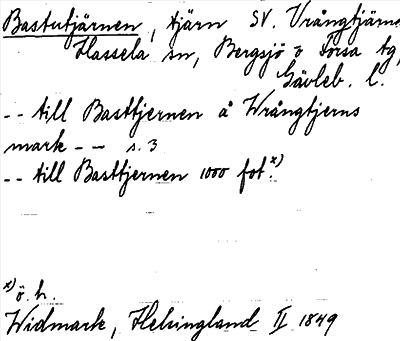 Bastutjärnen, tjärn SV. Vrångtjärn
Hassela sn, Bergsjö o Forsa tg,
Gävleb. l.
-- till Basttjernen å Wrångtjerns
mark -- s. 3
-- till Basttjernen 1000 fot.x)
x) ö. h.
Widmark, Helsingland II 1849